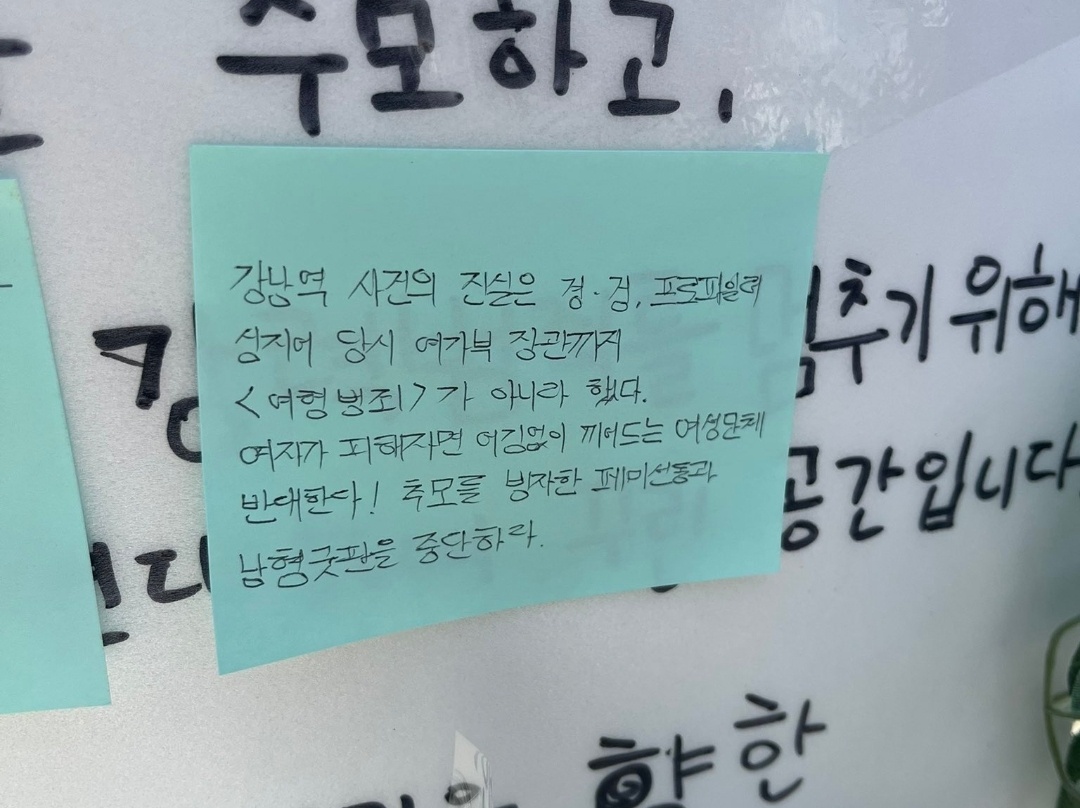 추모하고,
강남역 사건의 진실은 경·검, 프로파일러
심지어 당시 여가부 장관까지
<여혐범죄>가 아니라 했다.
여자가 피해자면 어김없이 끼어드는 여성단체
반대한다! 추모를 빙자한 페미선동과
남혐굿판을 중단하라.
멈추기 위해
공간입니다
향한